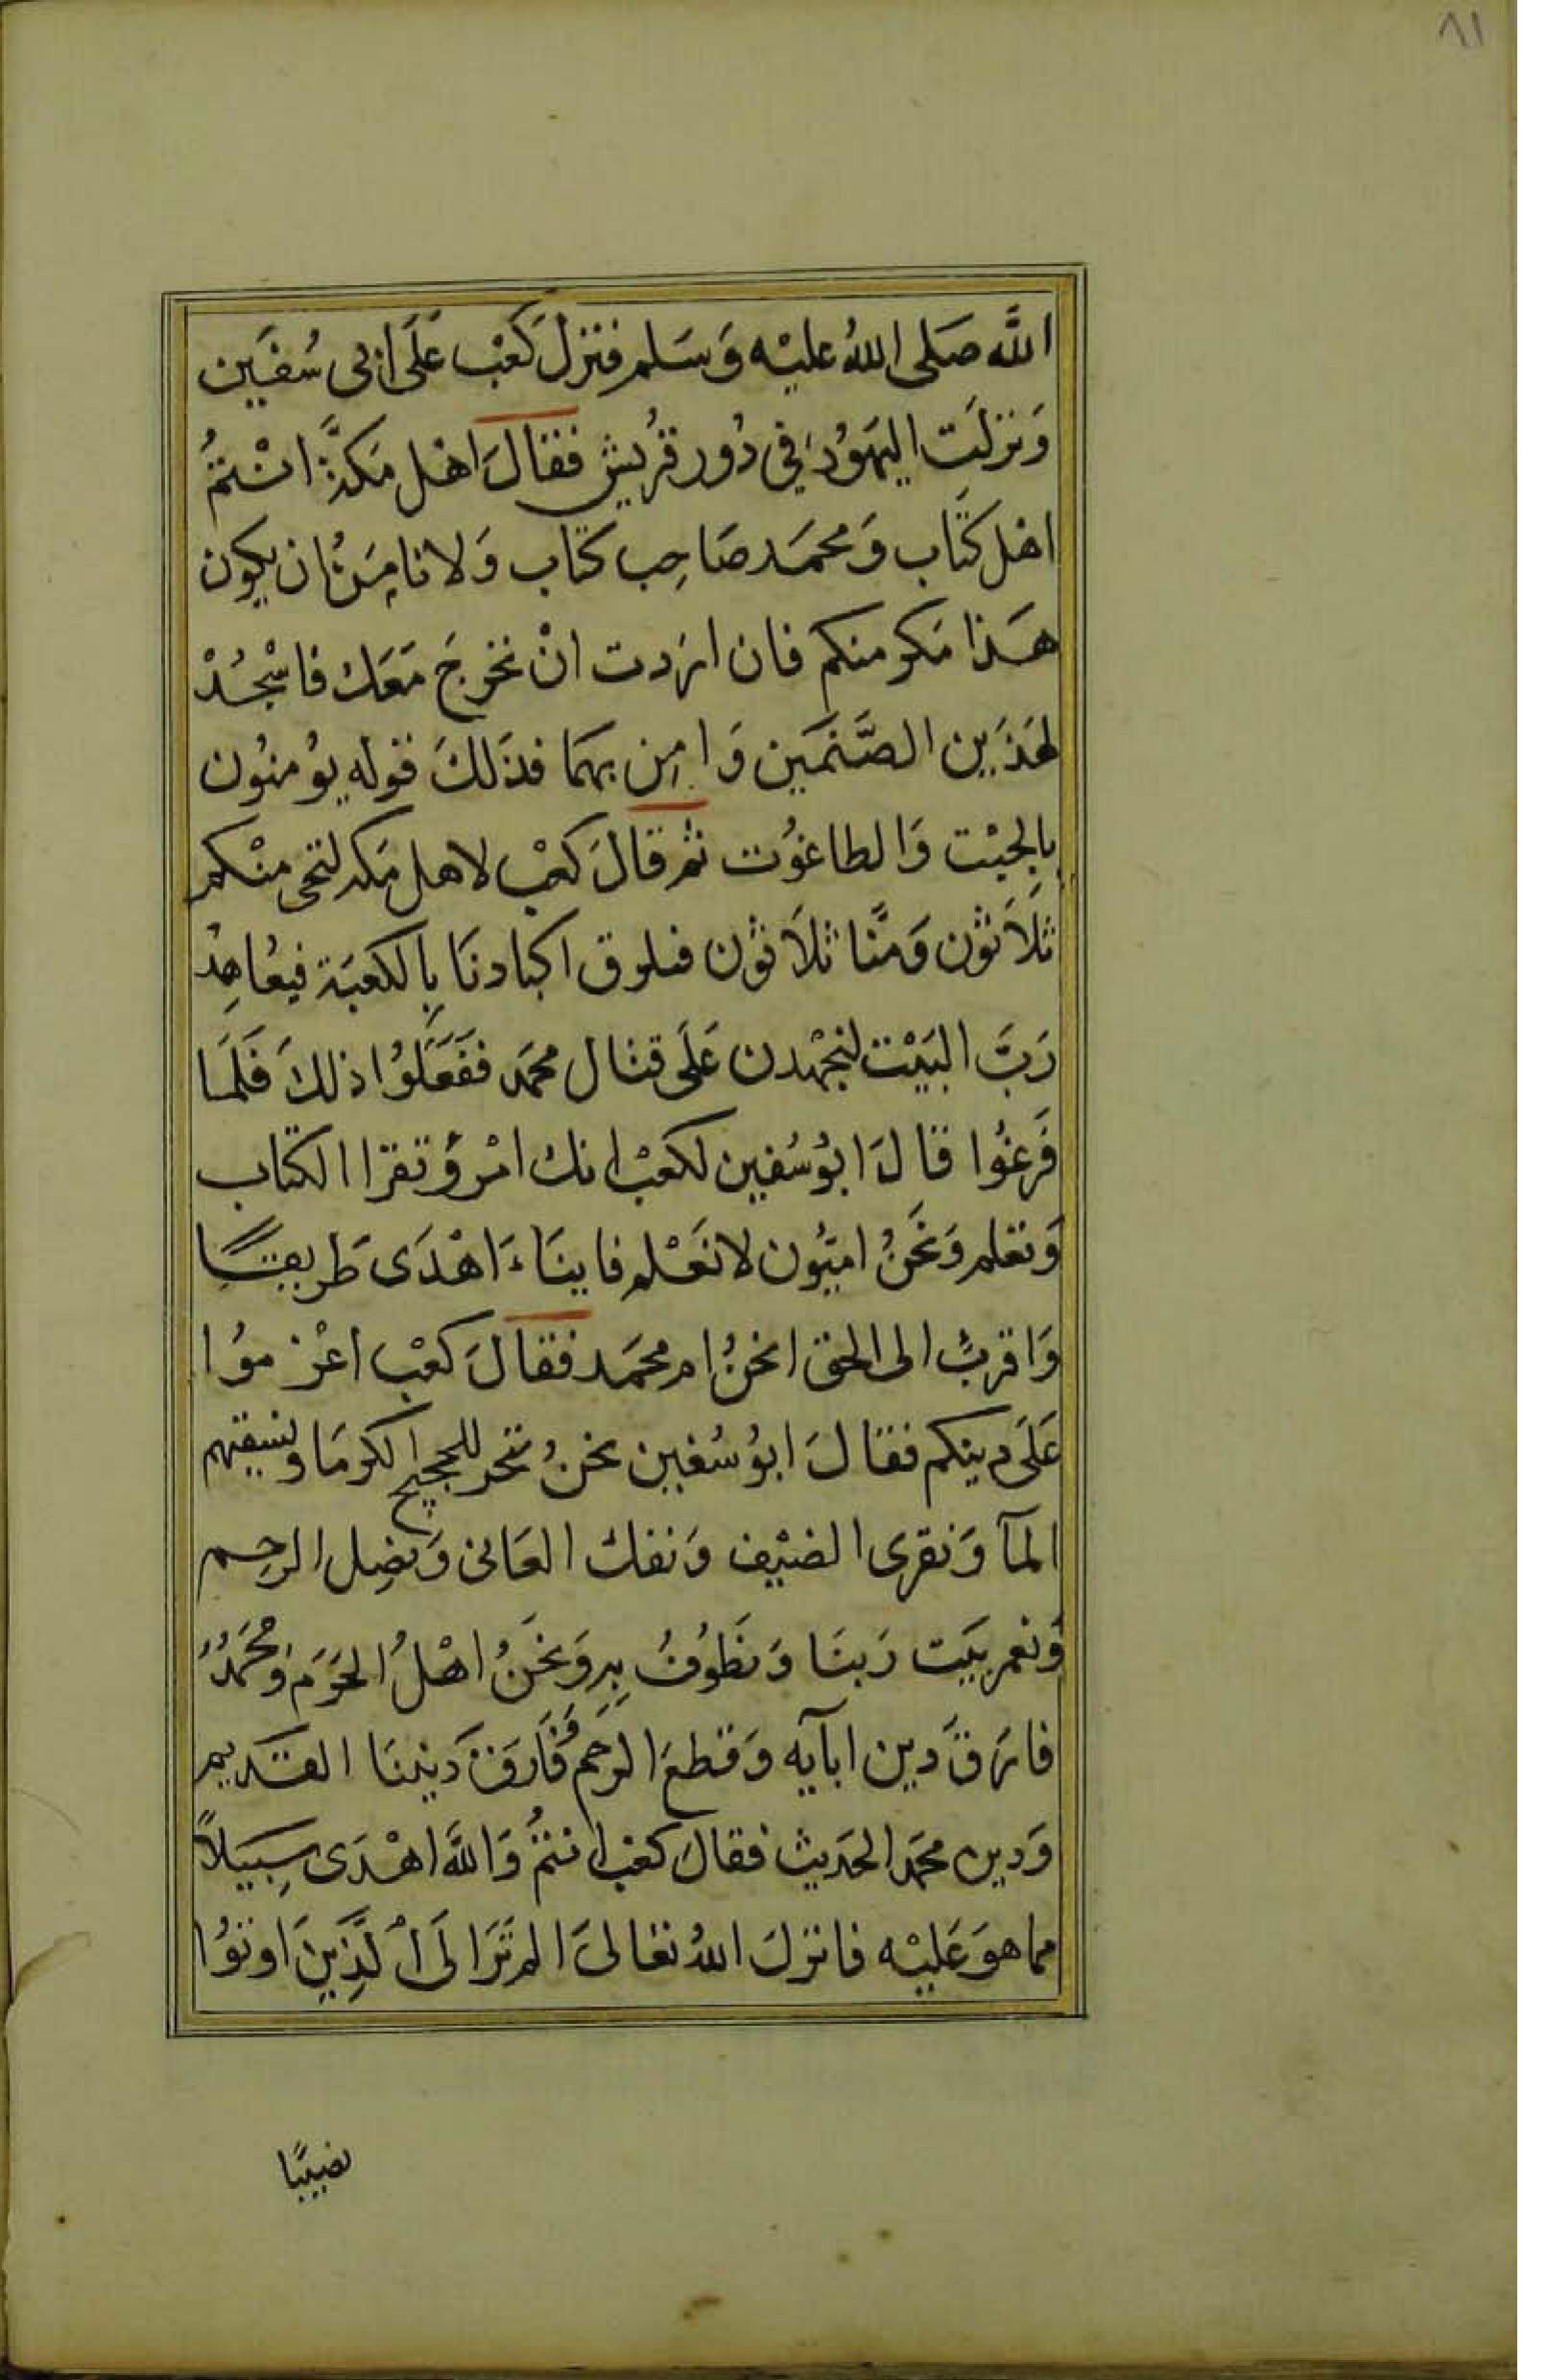 ٨١
اللَّه صَلى اللهُ عليْه وَسَلم فنزلَ كَعْب عَلَى ابى سُفيَن
وَنزلَت اليَهوُد في دُور قرُيش فقالَ اهْل مَكةَّ انْتمُ
اهْل كتَاب وَمحمَد صَاحِب كتَاب وَلا نامَنُ ان يكون
هَذا مَكر منكم فان اردت انْ نخرجَ مَعَك فاسْجُدْ
لهَذَين الصَّنمَين وَامِن بهمَا فذَلكَ قوله يوُمنوُن
بِالجبْت وَالطاغوُت ثم قالَ كعْب لاهل مَكه لتجى منْكم
ثلَاَثوُن وَمنَّا ثلاَثوُن فنلزق اكبادنَا بِالكعبَة فيعُاهِدُ
رَبَّ البَيْت لنجهْدن عَلَى قتال محمَد ففَعَلَوُا ذلكَ فَلمَا
فَرغوُا قالَ ابوُ سُفين لكعْب انك امْرؤ تقرا الكتاب
وَتعلم وَنحَنُ اميّوُن لا نعَْلم فاينَاءَ اهْدَى طَريقًا
وَاقربُ الى الحق انحنُ ام محمَد فقالَ كعْب اعْرْ موُا
عَلَى دينكم فقالَ ابوُ سُفين نحنُ ننحر للحجيج الكرمَا ونسقيهم
المآ وَنقرى الضيْف وَنفك العَانى وَنصِل الرحِم
وَنعمر بيَت رَبنَا وَنطَوُفُ بِه وَنحَنُ اهْلُ الحَرَم وَمُحَمَدُ
فارَقَ دين ابآيه وَقطعَ الرحِم وَفَارَقَ دَيننَا القَديم
وَدين محمَد الحَديث فقالَ كعْب انتمُ وَاللَّه اهْدَى سِبَيَلاً
مما هوَ عَليْه فانزلَ اللهُ تعَالىَ الم تَرَ الَى الَّذِينَ اوتوُا
نصيبًا